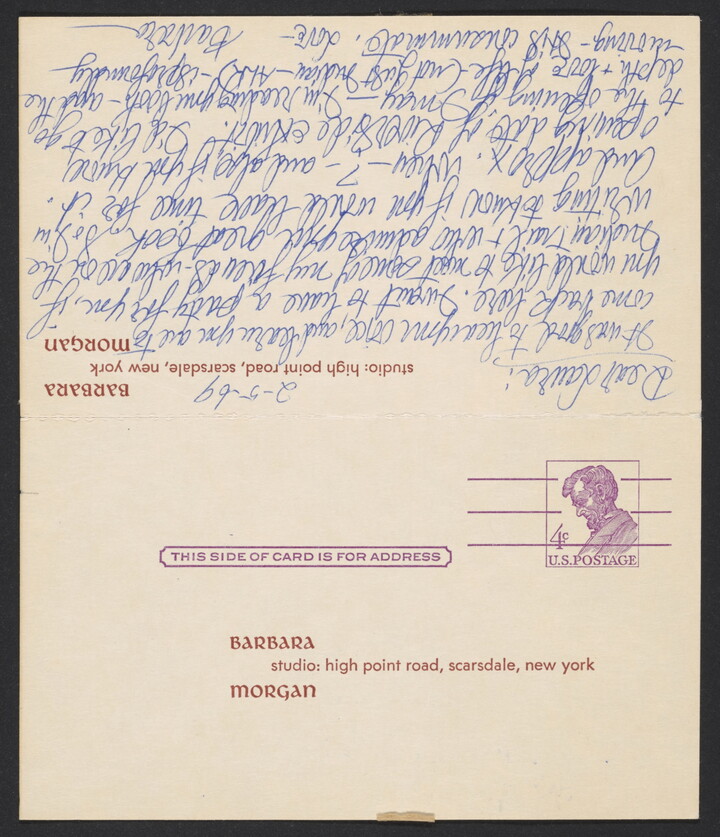 BARBARA
2-5-69
studio: high point road, scarsdale, new york
MORGAN
Dear Laura:
It was good to hear your voice, and learn you are to
come back here. I want to have a party for you, if
you would like to meet some of my friends - who are on the
Indian trail + who admire your great book. So I'm
writing to know if you would have time for it.
And approx. When - ? - and also, if you know
opening date of Riverside exhibit. I'd like to go
to the opening if I may - I'm reading your book - and the
depth + love of life (not just Indian - ALL) - is profoundly
moving - It is consummate. Love -
Barbara
4c
U.S. POSTAGE
THIS SIDE OF CARD IS FOR ADDRESS
BARBARA
studio: high point road, scarsdale, new york
MORGAN